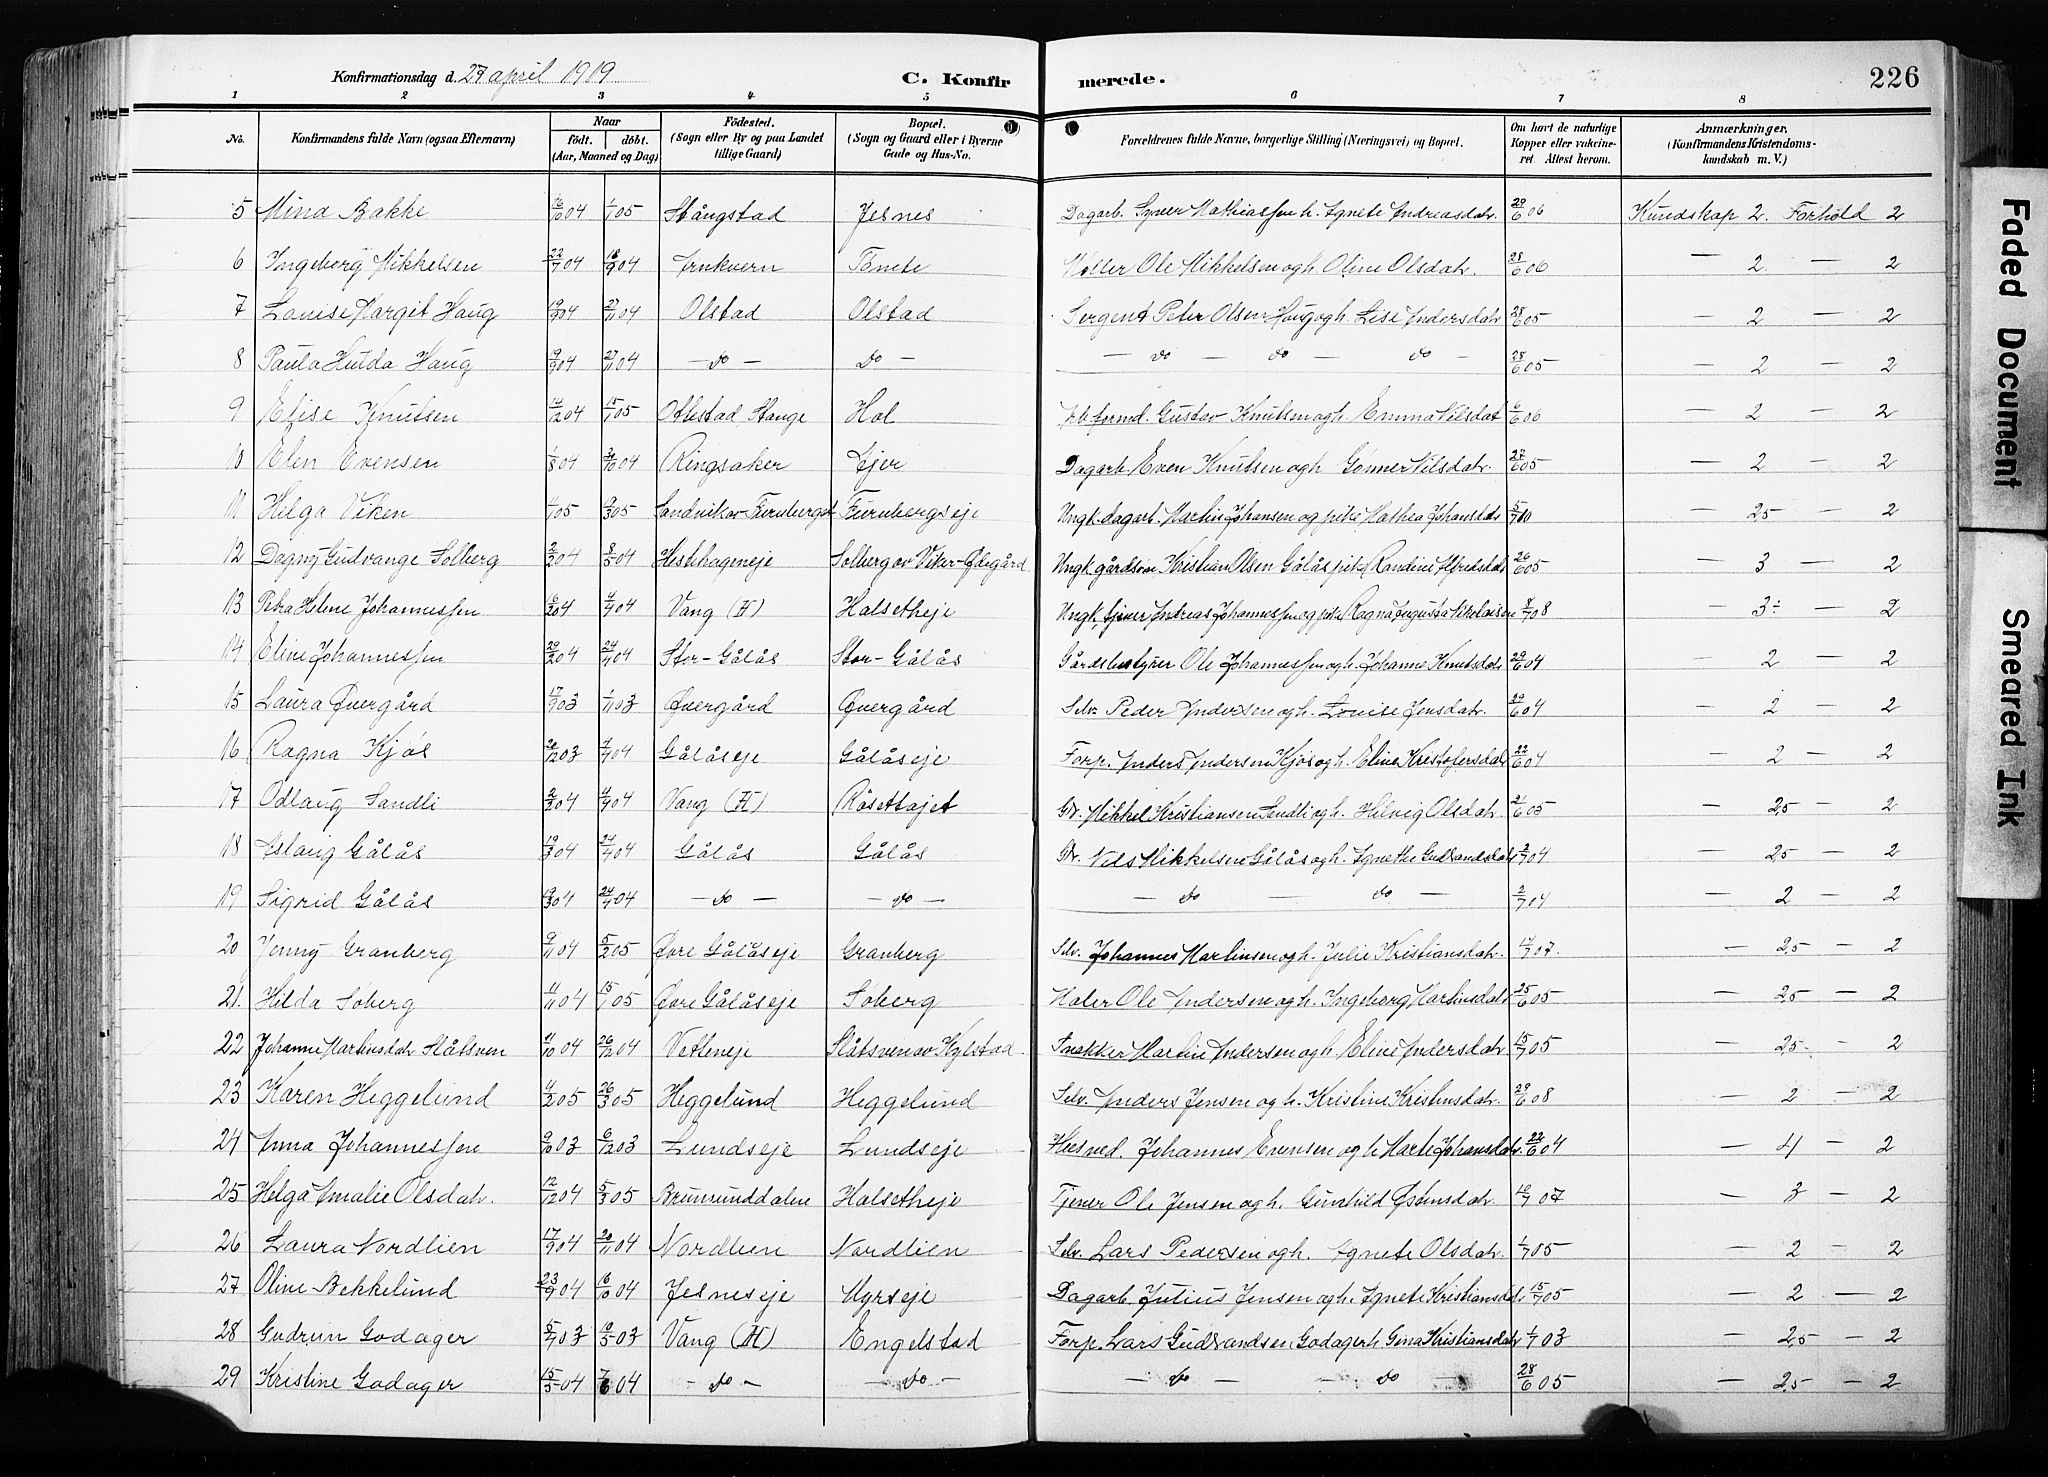 Konfirmationsdag d. 27 april 1919 C. Konfirmerede. 226
1 2 3 4 5 6 7 8
No. Konfirmandens fulde Navn (ogsaa Efternavn) Naar født. døbt. (Aar, Maaned og Dag) Fødested. (Sogn eller By og paa Landet tillige Gaard) Bopæl. (Sogn og Gaard eller i Byerne Gade og Hus-No. Forældrenes fulde Navne, borgerlige Stilling (Næringsvei) og Bopæl. Om havt de naturlige Kopper eller vakcineret. Attest herom. Anmærkninger. (Konfirmandens Kristendomskundskab m. V.)
5 Mina Bakke 16/10 04 1/1 05 Stångstad Jesnes Dagarb. Syver Mathiassen h. Agnete Andreasdatr. 29/6 06 Kundskap 2. Forhold 2
6 Ingeborg Mikkelsen 22/7 04 18/9 04 Arnkvern Tønete Møller Ole Mikkelsen og h. Oline Olsdatr. 28/6 06 — 2 — 2
7 Louise Margit Haug 19/9 04 27/11 04 Olstad Olstad Sergent Peter Olsen Haug og h. Lise Andersdatr 28/6 05 — 2 — 2
8 Paula Hulda Haug 19/9 04 27/11 04 — do — do — — do — do — do — 28/6 05 — 2 — 2
9 Elise Knutsen 14/12 04 15/1 05 Ottestad Stange Hol Arb.formd. Gustav Knutsen og h. Emma Nilsdat 6/6 06 — 2 — 2
10 Elen Evensen 1/8 04 /10 04 Ringsaker Ejer Dagarb. Even Knutsen og h. Gønner Nilsdatr. 27/6 05 — 2 — 2
11 Helga Viken 4/1 05 19/3 05 Sandvik av Furuberget Furubergseje Ungk. dagarb. Martin Johansen og pike Mathea Johansdatr 5/7 10 — 2,5 — 2
12 Dagny Gudvange Solberg 2/2 04 8/5 04 Hestehageneje Solberg av Viker-Ødegård Ungk. gårdsøn Kristian Olsen Gålås pike Randine Alfredsdatr 26/6 05 — 3 — 2
13 Petra Helene Johannessen 16/2 04 4/4 04 Vang (H) Halsetheje Ungk. tjener Andreas Johannessen og pike Ragna Augusta Nikolaisen 8/7 08 — 3÷ — 2
14 Eline Johannessen 29/2 04 24/4 04 Stor-Gålås Stor-Gålås Gårdsbestyrer Ole Johannessen og h. Johanne Knutsdatr 29/6 04 — 2 — 2
15 Laura Øvergård 17/9 03 1/11 03 Øvergård Øvergård Selv. Peder Andersen og h. Louise Jensdatr. 29/6 04 — 2 — 2
16 Ragna Kjøs 20/12 03 4/4 04 Gålåseje Gålåseje Forp. Anders Andersen Kjøs og h. Eline Kristofersdatr 22/6 04 — 2 — 2
17 Odlaug Sandli 2/3 04 4/4 04 Vang (H) Råsettajet Gr. Mikkel Kristiansen Sandli og h. Helvig Olsdatr. 21/6 05 — 2,5 — 2
18 Aslaug Gålås 19/3 04 24/4 04 Gålås Gålås Gr. Nels Mikkelsen Gålås og h. Agnethe Gudbrandsdatr 2/7 04 — 2,5 — 2
19 Sigrid Gålås 19/3 04 24/4 04 — do — — do — — do — do — 2/7 04 — 2 — 2
20 Jenny Granberg 9/11 04 5/2 05 Øvre Gålåseje Granberg Selv. Johannes Martinsen og h. Julie Kristiansdatr. 17/7 07. — 2,5 — 2
21. Hilda Søberg 11/11 04 15/1 05 Øvre Gålåseje Søberg Maler Ole Andersen og h. Ingeborg Martinsdatr 25/6 05 — 2,5 — 2
22 Johanne Martinsdatr Slåtsven 11/10 04 26/12 04 Vetteneje Slåtsven av Kylstad Snekker Martin Andersen og h. Eline Andersdatr 15/7 05 — 2,5 — 2
23 Karen Heggelund 4/2 05 26/3 05 Heggelund Heggelund Selv. Anders Jensen og h. Kristine Kristinsdatr. 29/6 08 — 2 — 2
24 Anna Johannessen 9/10 03 6/12 03 Lundseje Lundseje Husmd. Johannes Evensen og h Marte Johansdatr. 22/6 04 — 4 — 2
25 Helga Amalie Olsdatr. 12/12 04 5/3 05 Brumunddalen Halsetheje Tjener Ole Jensen og h. Gunhild Østensdatr. 10/7 07 — 3 — 2
26 Laura Nordlien 17/9 04 20/11 04 Nordlien Nordlien Selv. Lars Pedersen og h. Agnete Olsdatr. 1/7 05 — 2 — 2
27 Oline Bekkelund 23/9 04 16/10 04 Jesneseje Myrseje Dagarb. Julius Jensen og h. Agnete Kristiansdatr. 15/7 05 — 2 — 2
28 Gudrun Godager 5/7 03 10/5 03 Vang (H) Engelstad Forp. Lars Gudbrandsen Godager h. Gina Kristiansdatr 1/7 03 — 2,5 — 2
29 Kristine Godager 15/5 04 7/6 04 — do — — do — — do — — do — 28/6 05 — 2,5 — 2
Faded Document
Smeared Ink